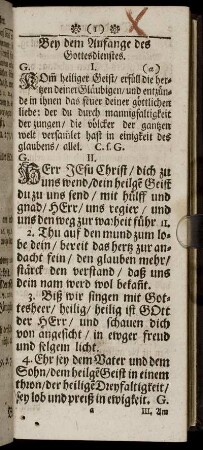 (1)
Bey dem Anfange des
Gottesdienstes.
G. I. (a)
KOm̃ heiliger Geist/ erfüll die her-
tzen deiner Gläubigen/ und entzün-
de in ihnen das feuer deiner göttlichen
liebe: der du durch mannigfaltigkeit
der zungen/ die völcker der gantzen
welt versam̃let hast in einigkeit des
glaubens/ allel. C. f. G.
G. II.
HErr JEsu Christ/ dich zu
uns wend/ dein heilgẽ Geist
du zu uns send/ mit hülff und
gnad/ HErr/ uns regier/ und
uns den weg zur warheit führ ꝛc.
2. Thu auf den mund zum lo-
be dein/ bereit das hertz zur an-
dacht fein/ den glauben mehr/
stärck den verstand/ daß uns
dein nam werd wol bekañt.
3. Biß wir singen mit Got-
tesheer/ heilig/ heilig ist GOtt
der HErr/ und schauen dich
von angesicht/ in ewger freud
und selgem licht.
4. Ehr sey dem Vater und dem
Sohn/ dem heilgẽ Geist in einem
thron/ der heiligẽ Dreyfaltigkeit/
sey lob und preiß in ewigkeit. G.
a III. Am